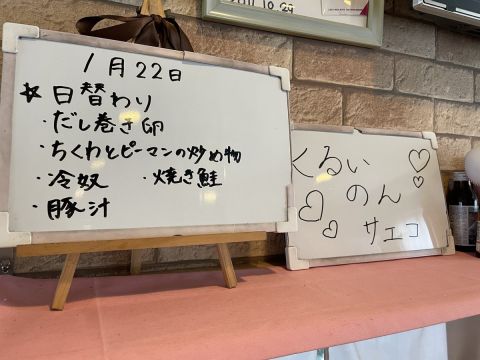 2011.10.29
1月22日
☆日替わり
・だし巻き卵
・ちくわとピーマンの炒め物
・冷奴 ・焼き鮭
・豚汁
くるぃ♡
♡のん♡
♡サエコ